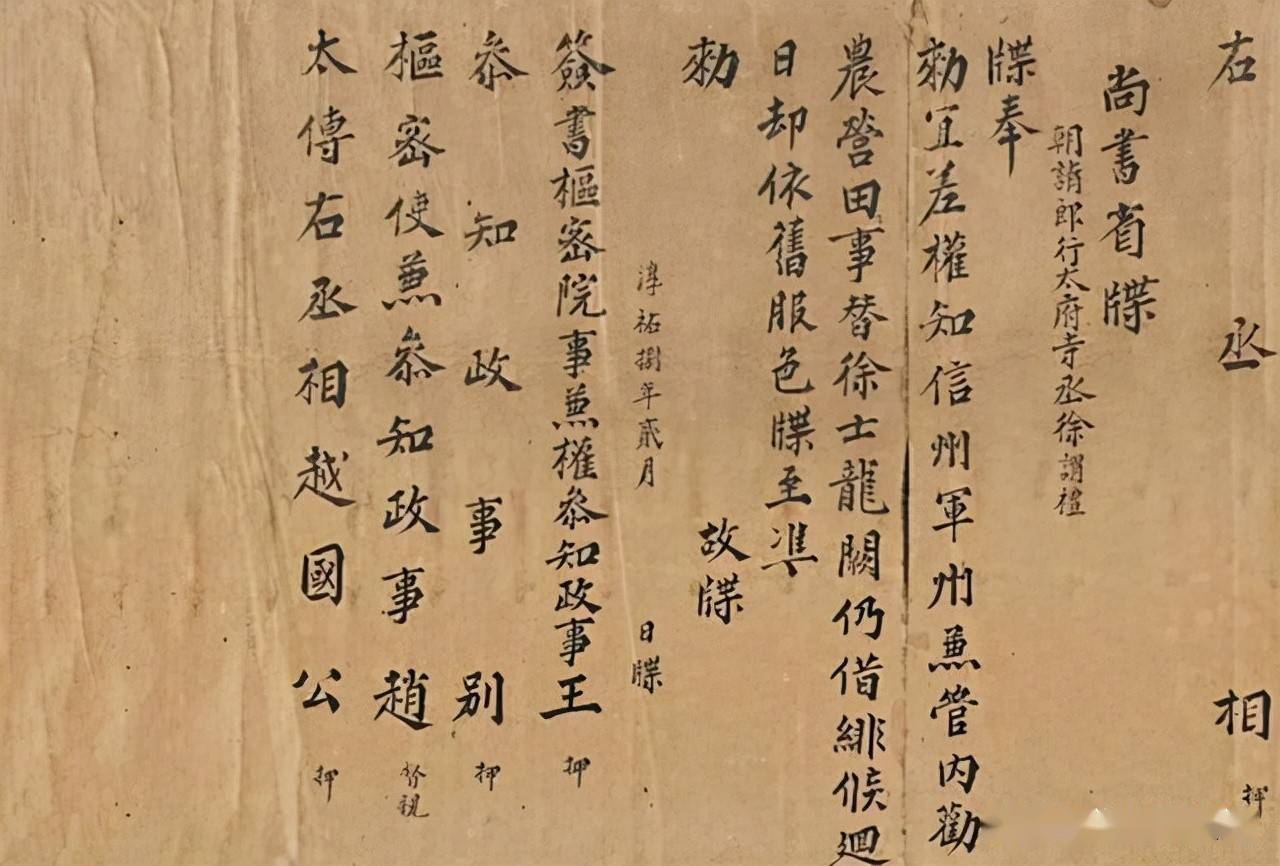 右丞相押
尚書省牒
朝請郎行太府寺丞徐謂禮
牒奉
勑宜差權知信州軍州兼管內勸
農營田事替徐士龍闕仍借緋候迴
日却依舊服色牒至準
勑故牒
淳祐捌年貳月日牒
簽書樞密院事兼權叅知政事王押
叅知政事別押
樞密使兼叅知政事趙督視
太傅右丞相越國公押